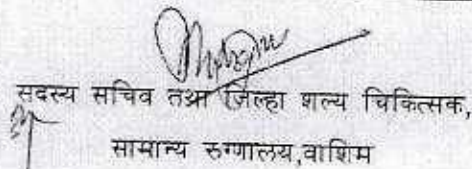 सदस्य सचिव तथा जिल्हा शल्य चिकित्सक,
सामान्य रुग्णालय,वाशिम